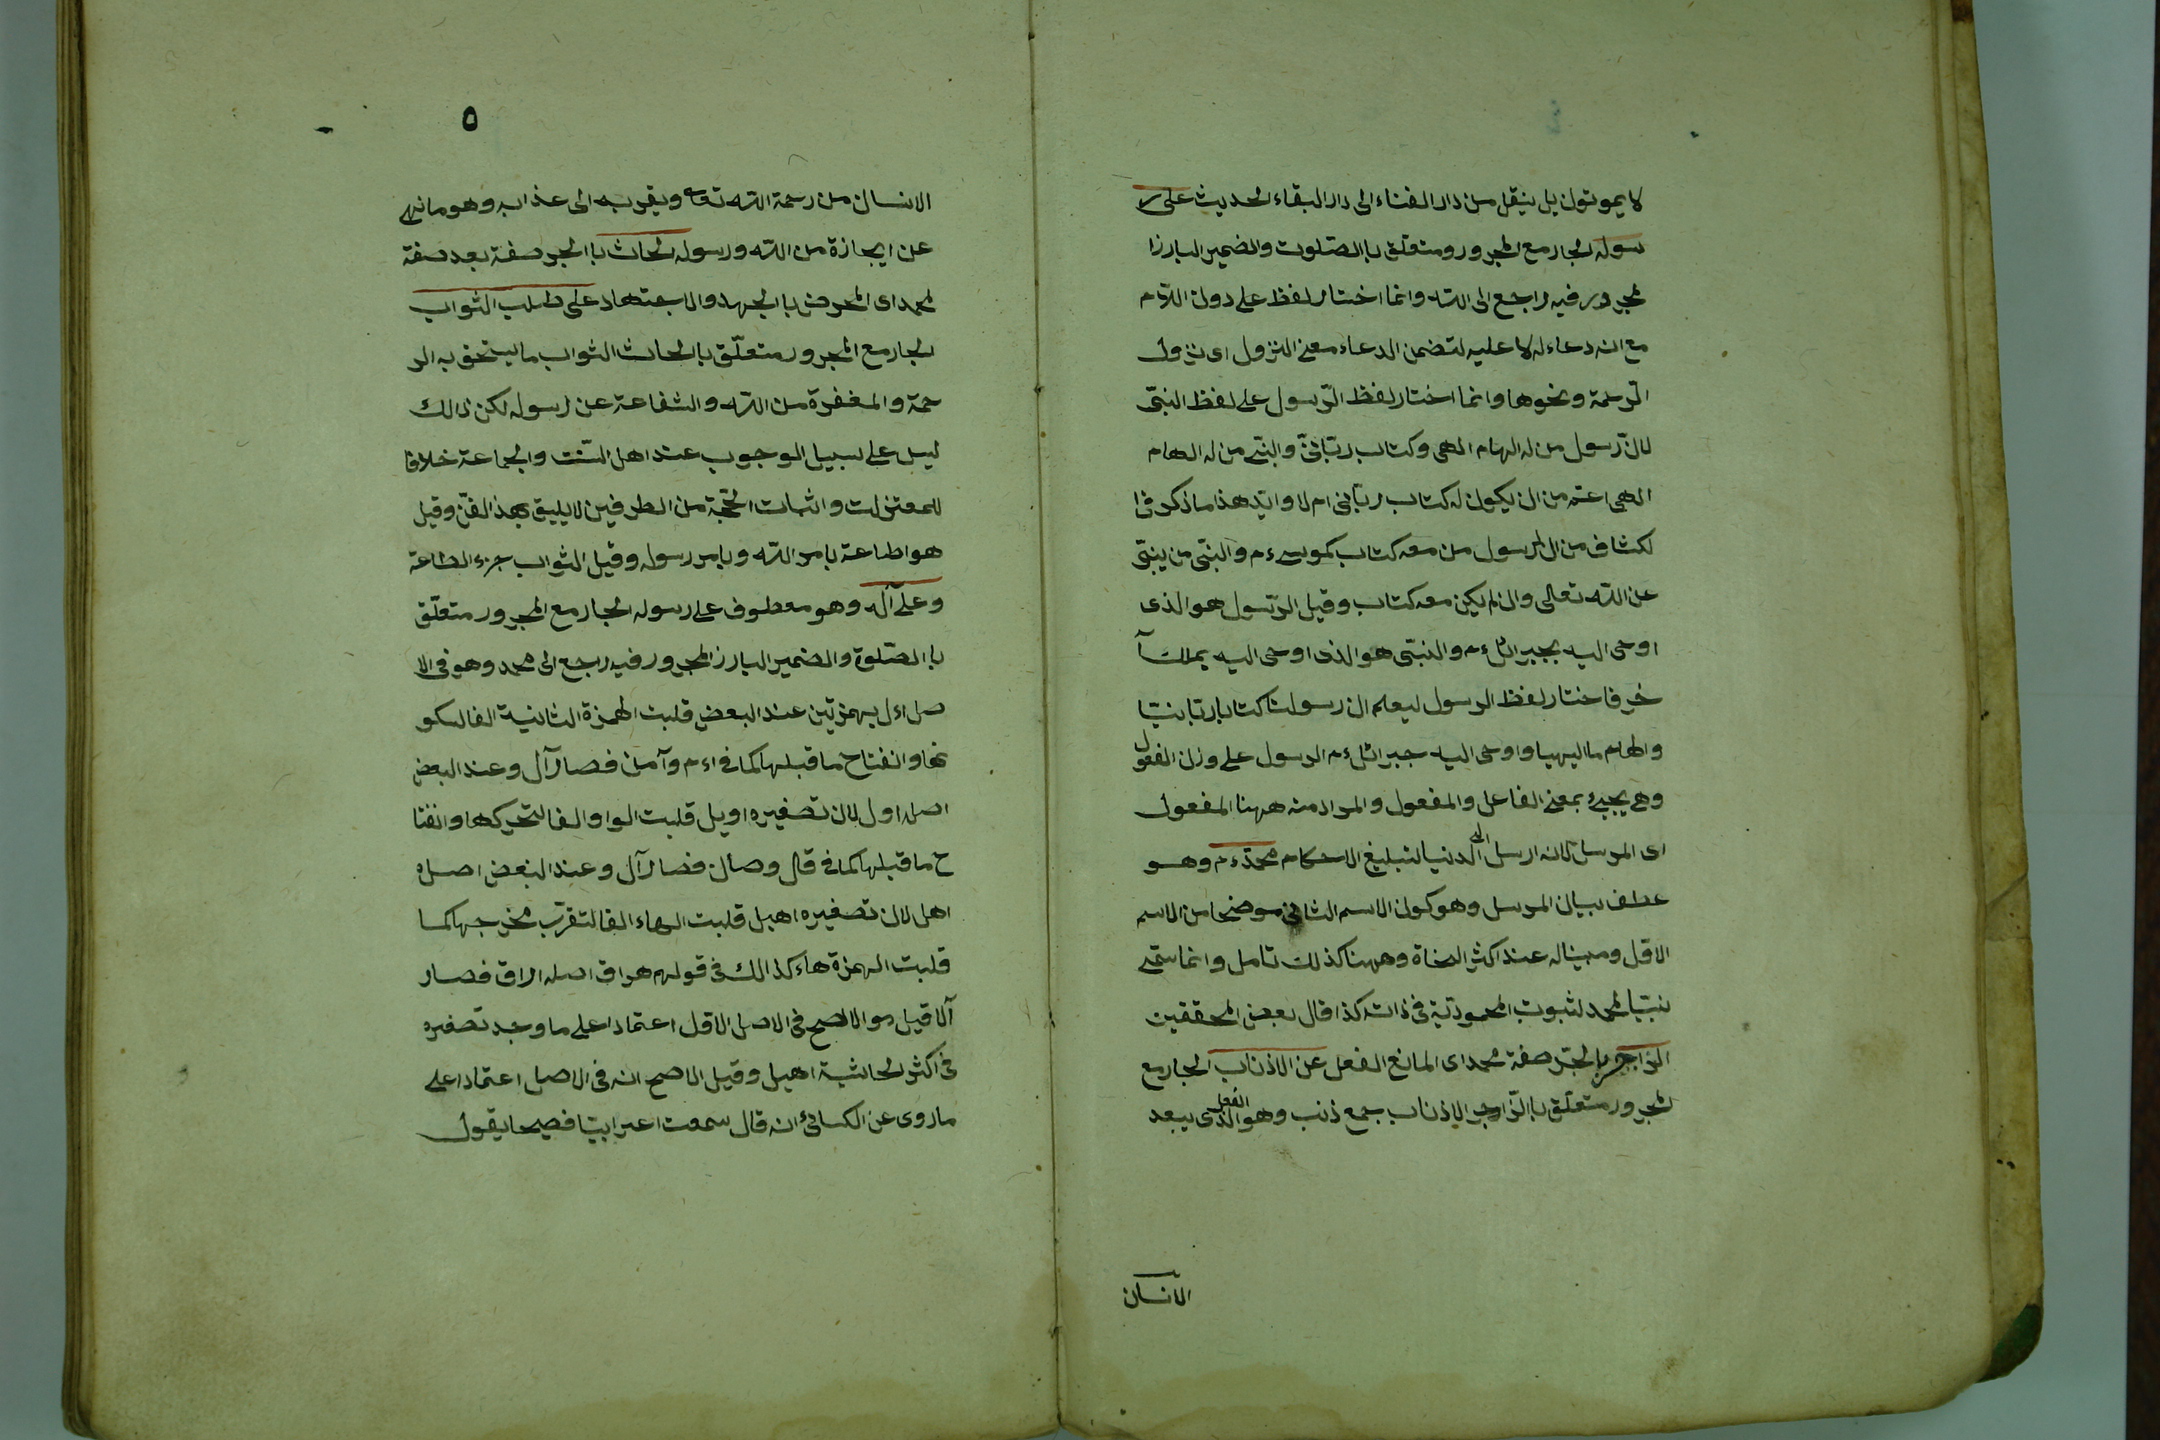 لا يموتون بل ينقل من دار الفناء الى دار البقاء الحديث على ر
سوله الجار مع المجرور ومتعلق باالصلوت والضمير البارزا
لمجرور فيه راجع الى الله وانما اختار لفظ على دون اللام
مع انه دعاء له لا عليه لتضمن الدعاء معنى النزول اى نزول
الرحمة ونحوها وانما اختار لفظ الرّسول على لفظ النبّى
لان رّسول من له الهام الهى وكتاب ربّانىّ والنبّى من له الهام
الهى اعمّ من ان يكون له كتاب ربّانى ام لا وايّد هذا ما ذكر فى ا
لكشاف من ان الرسول من معه كتاب كموسى ءم والنبّى من ينبّى
عن الله تعالى وان لم يكن معه كتاب وقيل الرّسول هو الذى
اوحى اليه بجبرائل ءم والنبّى هو الذى اوحى اليه بملك آ
خر فاختار لفظ الرسول ليعلم ان رسولنا كتابا ربّانيّا
والهام ما اليهيا واوحى اليه جبرائل ءم الرسول على وزن الفعول
وهى يجيئ بمعنى الفاعل والمفعول والمراد منه ههنا المفعول
اى المرسل لانه ارسل الى الدنيا لتبليغ الاحكام محمّد ءم وهو
عطف بيان المرسل وهو كون الاسم الثانى موضحا من الاسم
الاوّل ومبيّنا له عند اكثر النحاة وههنا كذلك تامل وانما سمّى
نبيّنا محمد لثبوت المحموديّة فى ذاته كذا قال بعض المحققين
الزاجر بالجرّ صفة محمد اى المانع الفعل عن الاذناب الجار مع
المجرور متعلّق باالزّاجر الاذناب جمع ذنب وهو الفعل الذى يبعد
الانسان
٥
الانسان من رحمة الله تع ويقربه الى عذابه وهو ما نهى
عن ايجازة من الله ورسوله الحاث باالجر صفة بعد صفة
لمحمد اى المحرض باالجهد والاجتهاد على طلب الثواب
الجار مع المجرور متعلّق باالحاث الثواب ما يستحق به الر
حمة والمغفرة من الله والشفاعة عن رسوله لكن ذالك
ليس على سبيل الوجوب عند اهل السّنت والجماعة خلافا
للمعتزلت واثبات الحجّة من الطرفين لا يليق بهذ الفنّ وقيل
هو اطاعة بامر الله وبامر رسوله وقيل الثواب جزء الطاعة
وعلى آله وهو معطوف على رسوله الجار مع المجرور متعلّق
باالصّلوة والضمير البارز المجرور فيه راجع الى محمد وهو فى الا
صل اءل بهمزتين عند البعض قلبت الهمزة الثانية الفا لسكو
نها وانفتاح ما قبلها كما فى اءم وآمن فصار آل وعند البعض
اصله اول لان تصغيره اويل قلبت الواو الفا لتحركها وانفتا
ح ما قبلها كما فى قال وصان فصار آل وعند البعض اصله
اهل لان تصغيره اهيل قلبت الهاء الفا لتقرّب مخرجها كما
قلبت الهمزة هاء كذالك فى قولهم هراق اصله اراق فصار
آلا قيل هو الاصح فى الاصل الاوّل اعتمادا على ما وجد تصغيره
فى اكثر الحاشية اهيل وقيل الاصح انه فى الاصل اعتمادا على
ما روى عن الكسائىء انه قال سمعت اعرابيّا فصيحا يقول